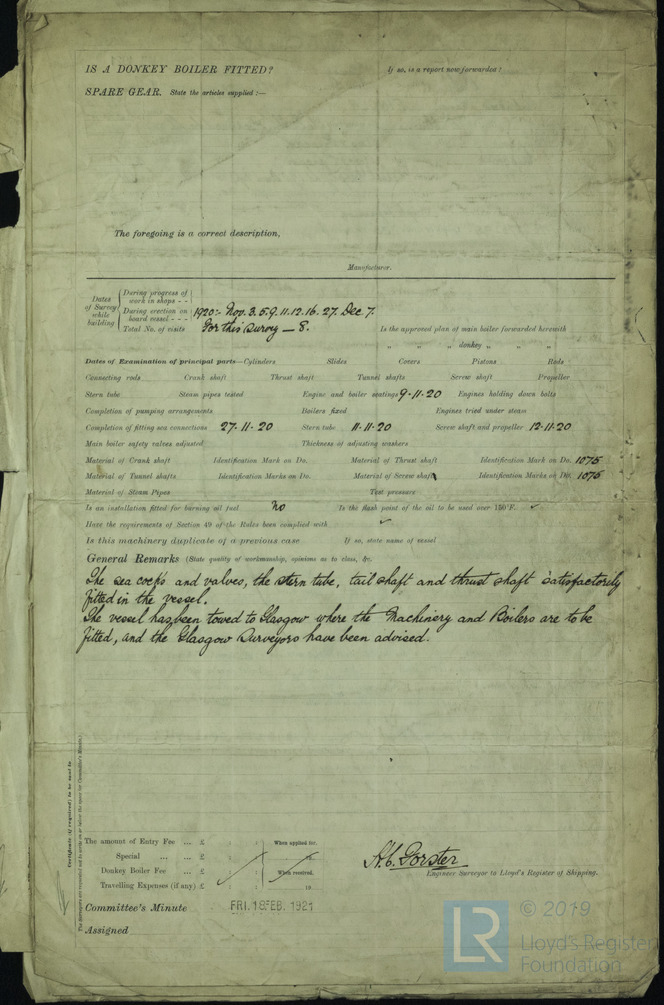 IS A DONKEY BOILER FITTED? If so, is a report now forwarded?
SPARE GEAR. State the articles supplied :—
The foregoing is a correct description,
Manufacturer.
Dates of Survey while building
During progress of work in shops - -
During erection on board vessel - - - 1920:- Nov. 3. 5. 9. 11. 12. 16. 27. Dec 7.
Total No. of visits For this survey — 8.
Is the approved plan of main boiler forwarded herewith
„ „ „ donkey „ „ „
Dates of Examination of principal parts—Cylinders Slides Covers Pistons Rods
Connecting rods Crank shaft Thrust shaft Tunnel shafts Screw shaft Propeller
Stern tube Steam pipes tested Engine and boiler seatings 9-11-20 Engines holding down bolts
Completion of pumping arrangements Boilers fixed Engines tried under steam
Completion of fitting sea connections 27-11-20 Stern tube 11-11-20 Screw shaft and propeller 12-11-20
Main boiler safety valves adjusted Thickness of adjusting washers
Material of Crank shaft Identification Mark on Do. Material of Thrust shaft Identification Mark on Do. 1075
Material of Tunnel shafts Identification Marks on Do. Material of Screw shafts Identification Marks on Do. 1076
Material of Steam Pipes Test pressure
Is an installation fitted for burning oil fuel no Is the flash point of the oil to be used over 150°F. ✓
Have the requirements of Section 49 of the Rules been complied with ✓
Is this machinery duplicate of a previous case If so, state name of vessel
General Remarks (State quality of workmanship, opinions as to class, &c.
The sea cocks and valves, the stern tube, tail shaft and thrust shaft satisfactorily
fitted in the vessel.
The vessel has been towed to Glasgow where the Machinery and Boilers are to be
fitted, and the Glasgow Surveyors have been advised.
Certificate (if required) to be sent to
The Surveyors are requested not to write on or below the space for Committee's Minute.
The amount of Entry Fee ... £ : : When applied for,
Special ... ... £ : : 19
Donkey Boiler Fee ... £ : : When received,
Travelling Expenses (if any) £ : : 19
H.C. Forster
Engineer Surveyor to Lloyd's Register of Shipping.
Committee's Minute FRI. 18 FEB. 1921
Assigned
LR © 2019
Lloyd's Register
Foundation